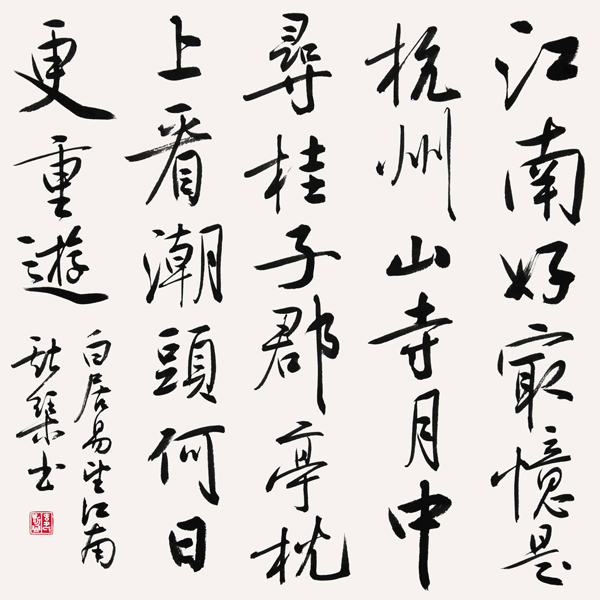 江南好寂憶是
杭州山寺月中
尋桂子郡亭枕
上看潮頭何日
更重遊
白居易望江南